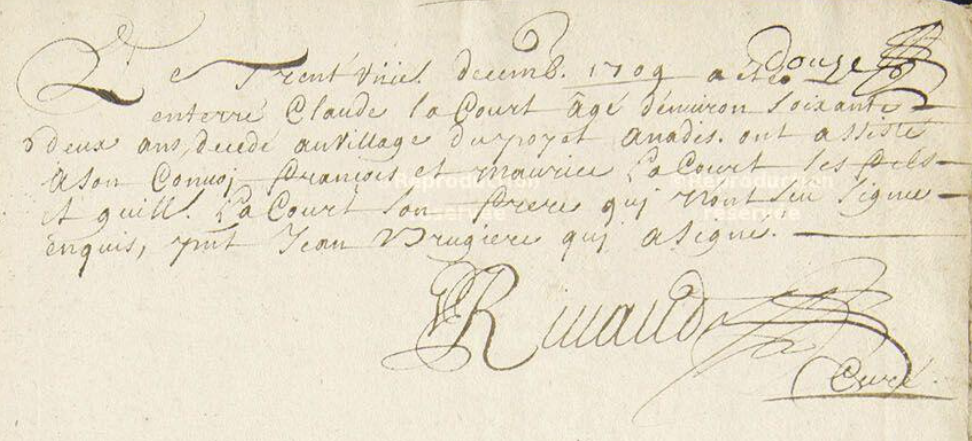 Le Trent Uniel decemb. 1709 a eté Douze
enterré Claude la Court âgé denuiron Soixante
deux ans, decedé au Village du poyet anadis. ont assisté
a son Convoj François et maurice La Court ses fils
et guill. La Court son frere quj n'ont sçu signe
enquis, pnt Jean Brugiere quj a signe.
Rinaud
Curé.
Reproduction réservée
Reproduction réservée